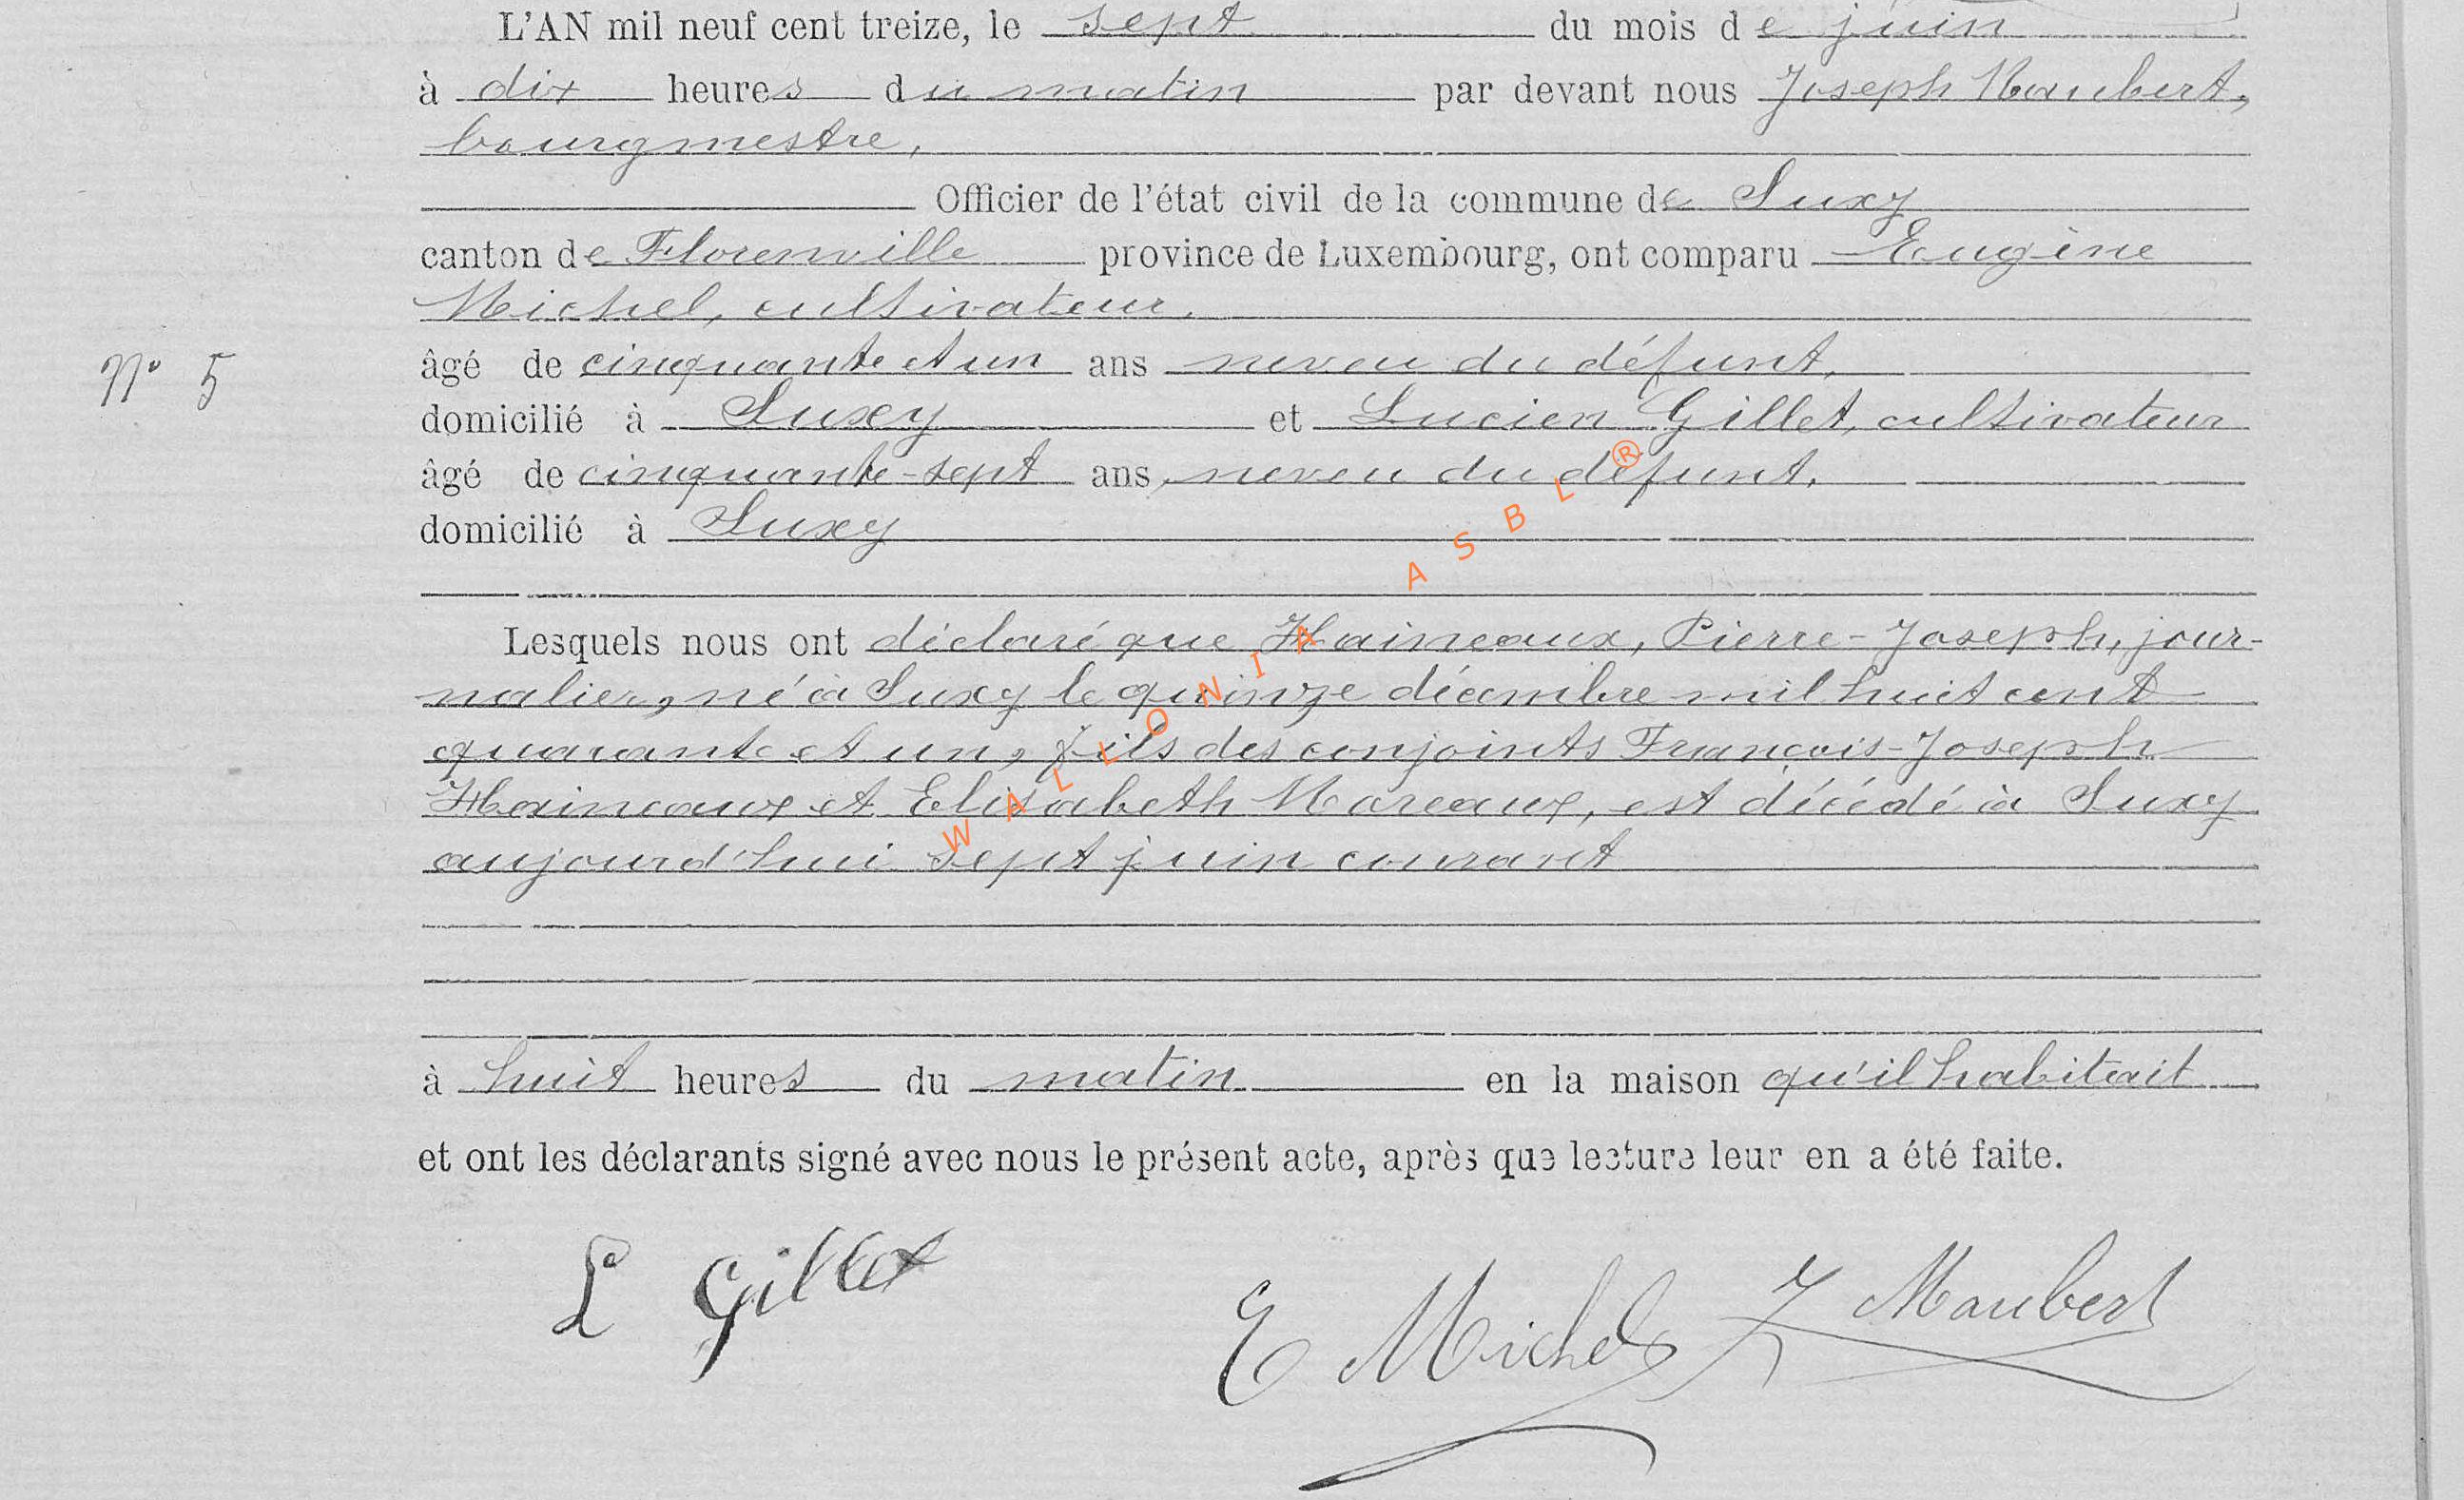 L'AN mil neuf cent treize, le sept du mois de juin
à dix heures du matin par devant nous Joseph Maubert,
bourgmestre,
Officier de l'état civil de la commune de Suxy
canton de Florenville province de Luxembourg, ont comparu Eugène
Michel, cultivateur,
N° 5
âgé de cinquante et un ans neveu du défunt,
domicilié à Suxy et Lucien Gillet, cultivateur
âgé de cinquante-sept ans, neveu du défunt,
domicilié à Suxy
Lesquels nous ont déclaré que Haineaux, Pierre-Joseph, jour-
nalier, né à Suxy le quinze décembre mil huit cent
quarante et un, fils des conjoints François-Joseph
Haineaux et Elisabeth Mareaux, est décédé à Suxy
aujourd'hui sept juin courant
à huit heures du matin en la maison qu'il habitait
et ont les déclarants signé avec nous le présent acte, après que lecture leur en a été faite.
L Gillet
E Michel
J Maubert
WALLONIA ASBL ®